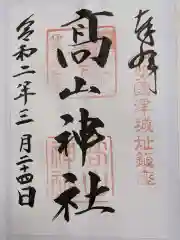 奉拝
國津城址鎮座
髙山神社
令和二年三月二十四日